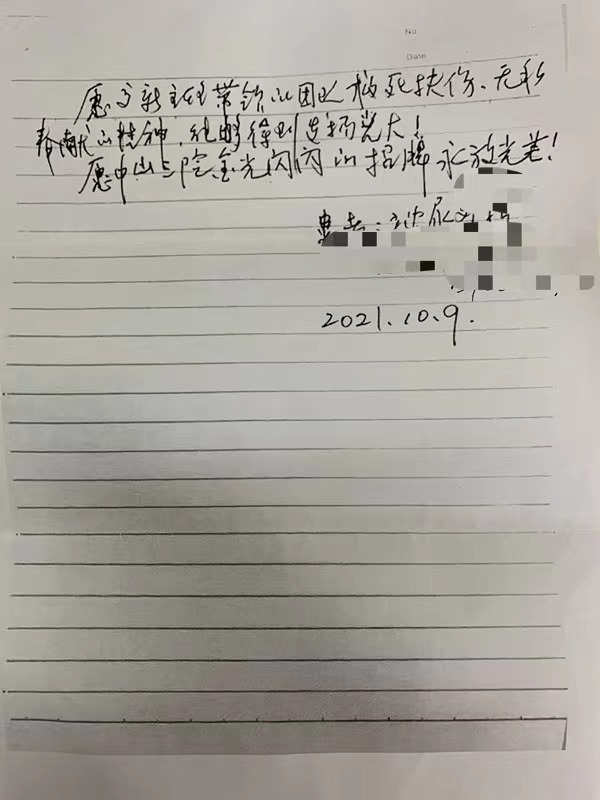 No
Date
愿高新主任带领的团队救死扶伤、无私
奉献的精神,能够得到发扬光大!
愿中山三院金光闪闪的招牌永放光芒!
患者:
2021.10.9.